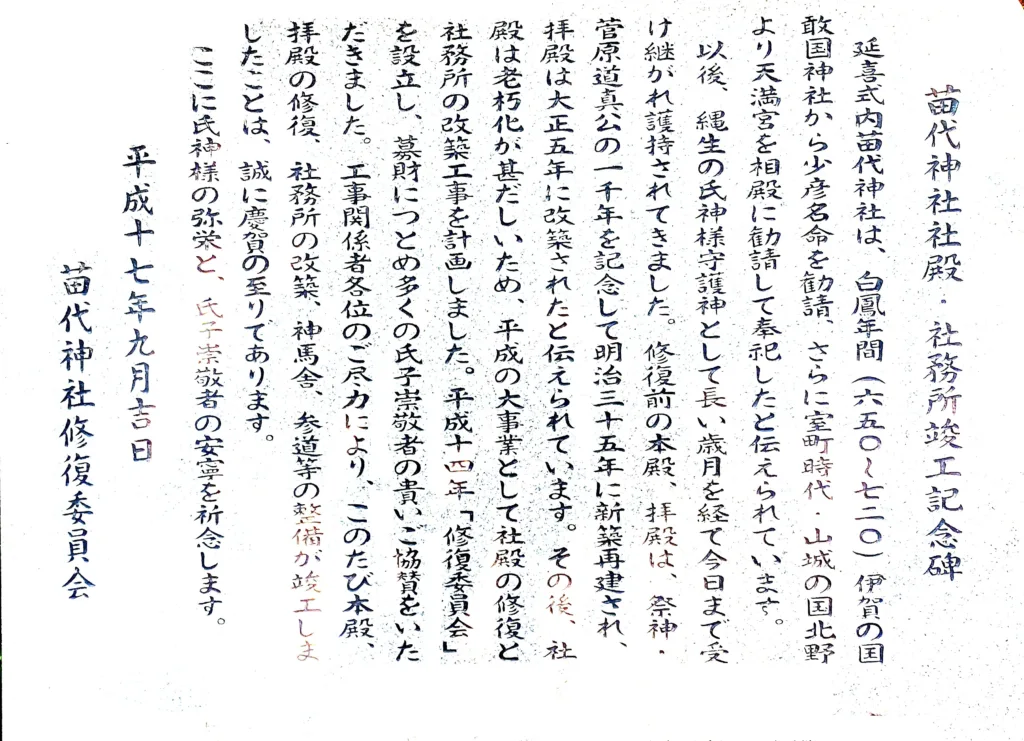 苗代神社社殿・社務所竣工記念碑
延喜式内苗代神社は、白鳳年間（六五〇〜七二〇）伊賀の国
敢国神社から少彦名命を勧請、さらに室町時代・山城の国北野
より天満宮を相殿に勧請して奉祀したと伝えられています。
以後、縄生の氏神様守護神として長い歳月を経て今日まで受
け継がれ護持されてきました。修復前の本殿、拝殿は、祭神・
菅原道真公の一千年を記念して明治三十五年に新築再建され、
拝殿は大正五年に改築されたと伝えられています。その後、社
殿は老朽化が甚だしいため、平成の大事業として社殿の修復と
社務所の改築工事を計画しました。平成十四年「修復委員会」
を設立し、募財につとめ多くの氏子崇敬者の貴いご協賛をいた
だきました。工事関係者各位のご尽力により、このたび本殿、
拝殿の修復、社務所の改築、神馬舎、参道等の整備が竣工しま
したことは、誠に慶賀の至りであります。
ここに氏神様の弥栄と、氏子崇敬者の安寧を祈念します。
平成十七年九月吉日
苗代神社修復委員会